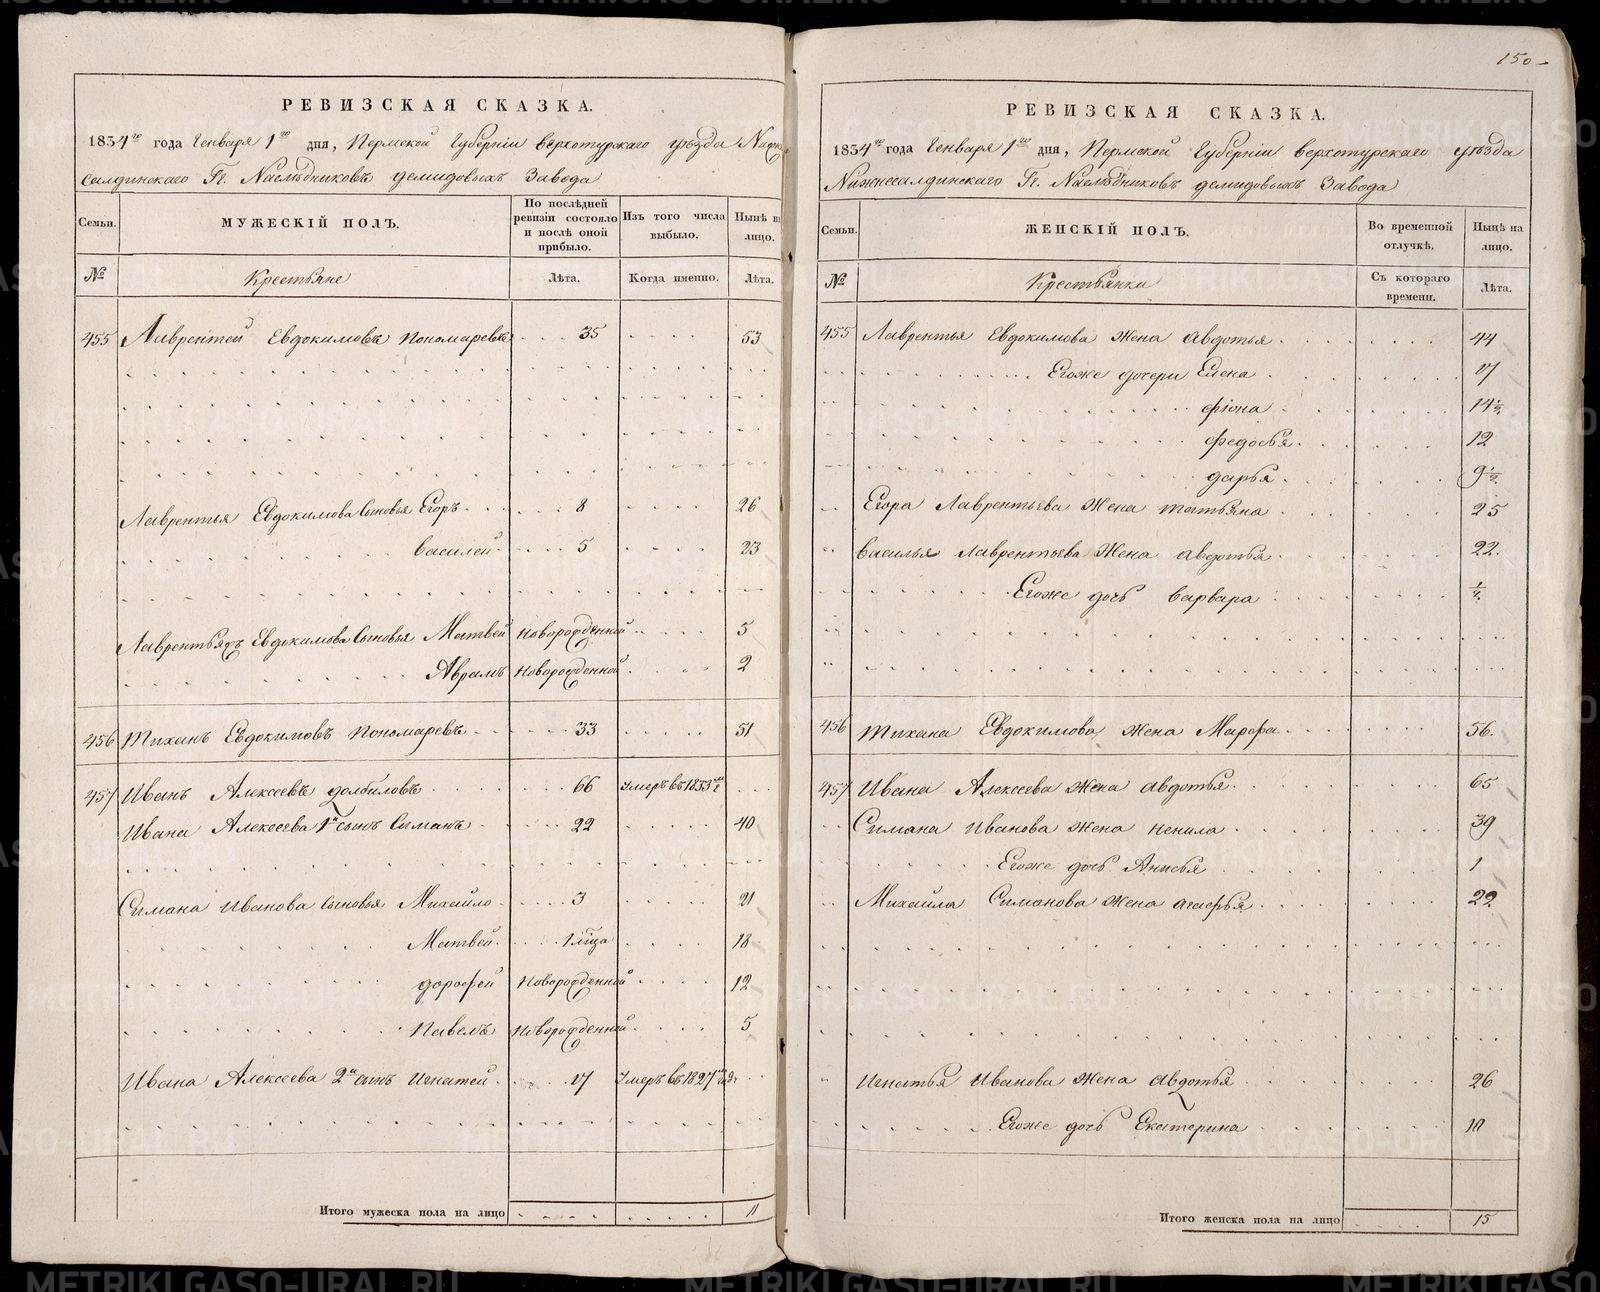 150
РЕВИЗСКАЯ СКАЗКА.
1834го года Генваря 1го дня, Пермской Губернии Верхотурскаго уезда Нижне
салдинскаго Гг. Наследниковъ Демидовыхъ Завода
Семьи. МУЖЕСКІЙ ПОЛЪ. По послѣдней ревизіи состояло и послѣ оной прибыло. Изъ того числа выбыло. Нынѣ на лицо.
№ Крестьяне Лѣта. Когда именно. Лѣта.
455 Лаврентей Евдокимовъ Пономаревъ 35 53
Лаврентья Евдокимова Сыновья Егоръ 8 26
Василей 5 23
Лаврентья Евдокимова Сыновья Матвей Новорожденной 5
Аврамъ Новорожденной 2
456 Тиханъ Евдокимовъ Пономаревъ 33 51
457 Иванъ Алексеевъ Долбиловъ 66 Умеръ въ 1833мъ г
Ивана Алексеева 1й сынъ Симанъ 22 40
Симана Иванова Сыновья Михайло 3 21
Матвей 1 м?ца 18
Дорофей Новорожденной 12
Павелъ Новорожденной 5
Ивана Алексеева 2й сынъ Игнатей 17 Умеръ въ 1827м год:
Итого мужеска пола на лицо 11
РЕВИЗСКАЯ СКАЗКА.
1834го года Генваря 1го дня, Пермской Губернии Верхотурскаго уезда
Нижнесалдинскаго Гг. Наследниковъ Демидовыхъ Завода
Семьи. ЖЕНСКІЙ ПОЛЪ. Во временной отлучкѣ. Нынѣ на лицо.
№ Крестьянки Съ котораго времени. Лѣта.
455 Лаврентья Евдокимова Жена Авдотья 44
Егоже дочери Елена 17
Фіона 14½
Федосья 12
Дарья 9½
Егора Лаврентьева Жена Татьяна 25
Василья Лаврентьева Жена Авдотья 22.
Егоже дочь Варвара
456 Тихана Евдокимова Жена Марфа 56.
457 Ивана Алексеева Жена Авдотья 65
Симана Иванова Жена Ненила 39
Егоже дочь Анисья 1
Михайла Симанова Жена Агафья 22
Игнатья Иванова Жена Авдотья 26
Егоже дочь Екатерина 10
Итого женска пола на лицо 15
METRIKI.GASO-URAL.RU